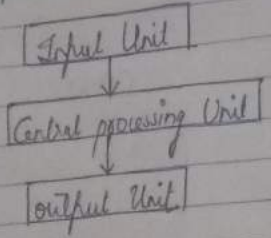 Input Unit
Central processing Unit
output Unit